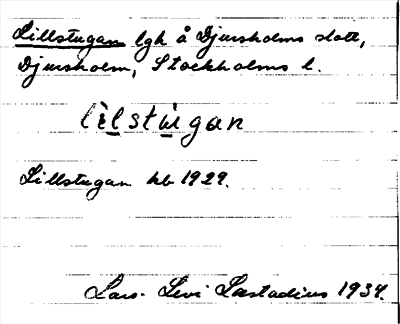 Lillstugan lgh å Djursholms slott,
Djursholm, Stockholms l.
lìlstùgan
Lillstugan hb 1929.
Lars-Levi Læstadius 1934.